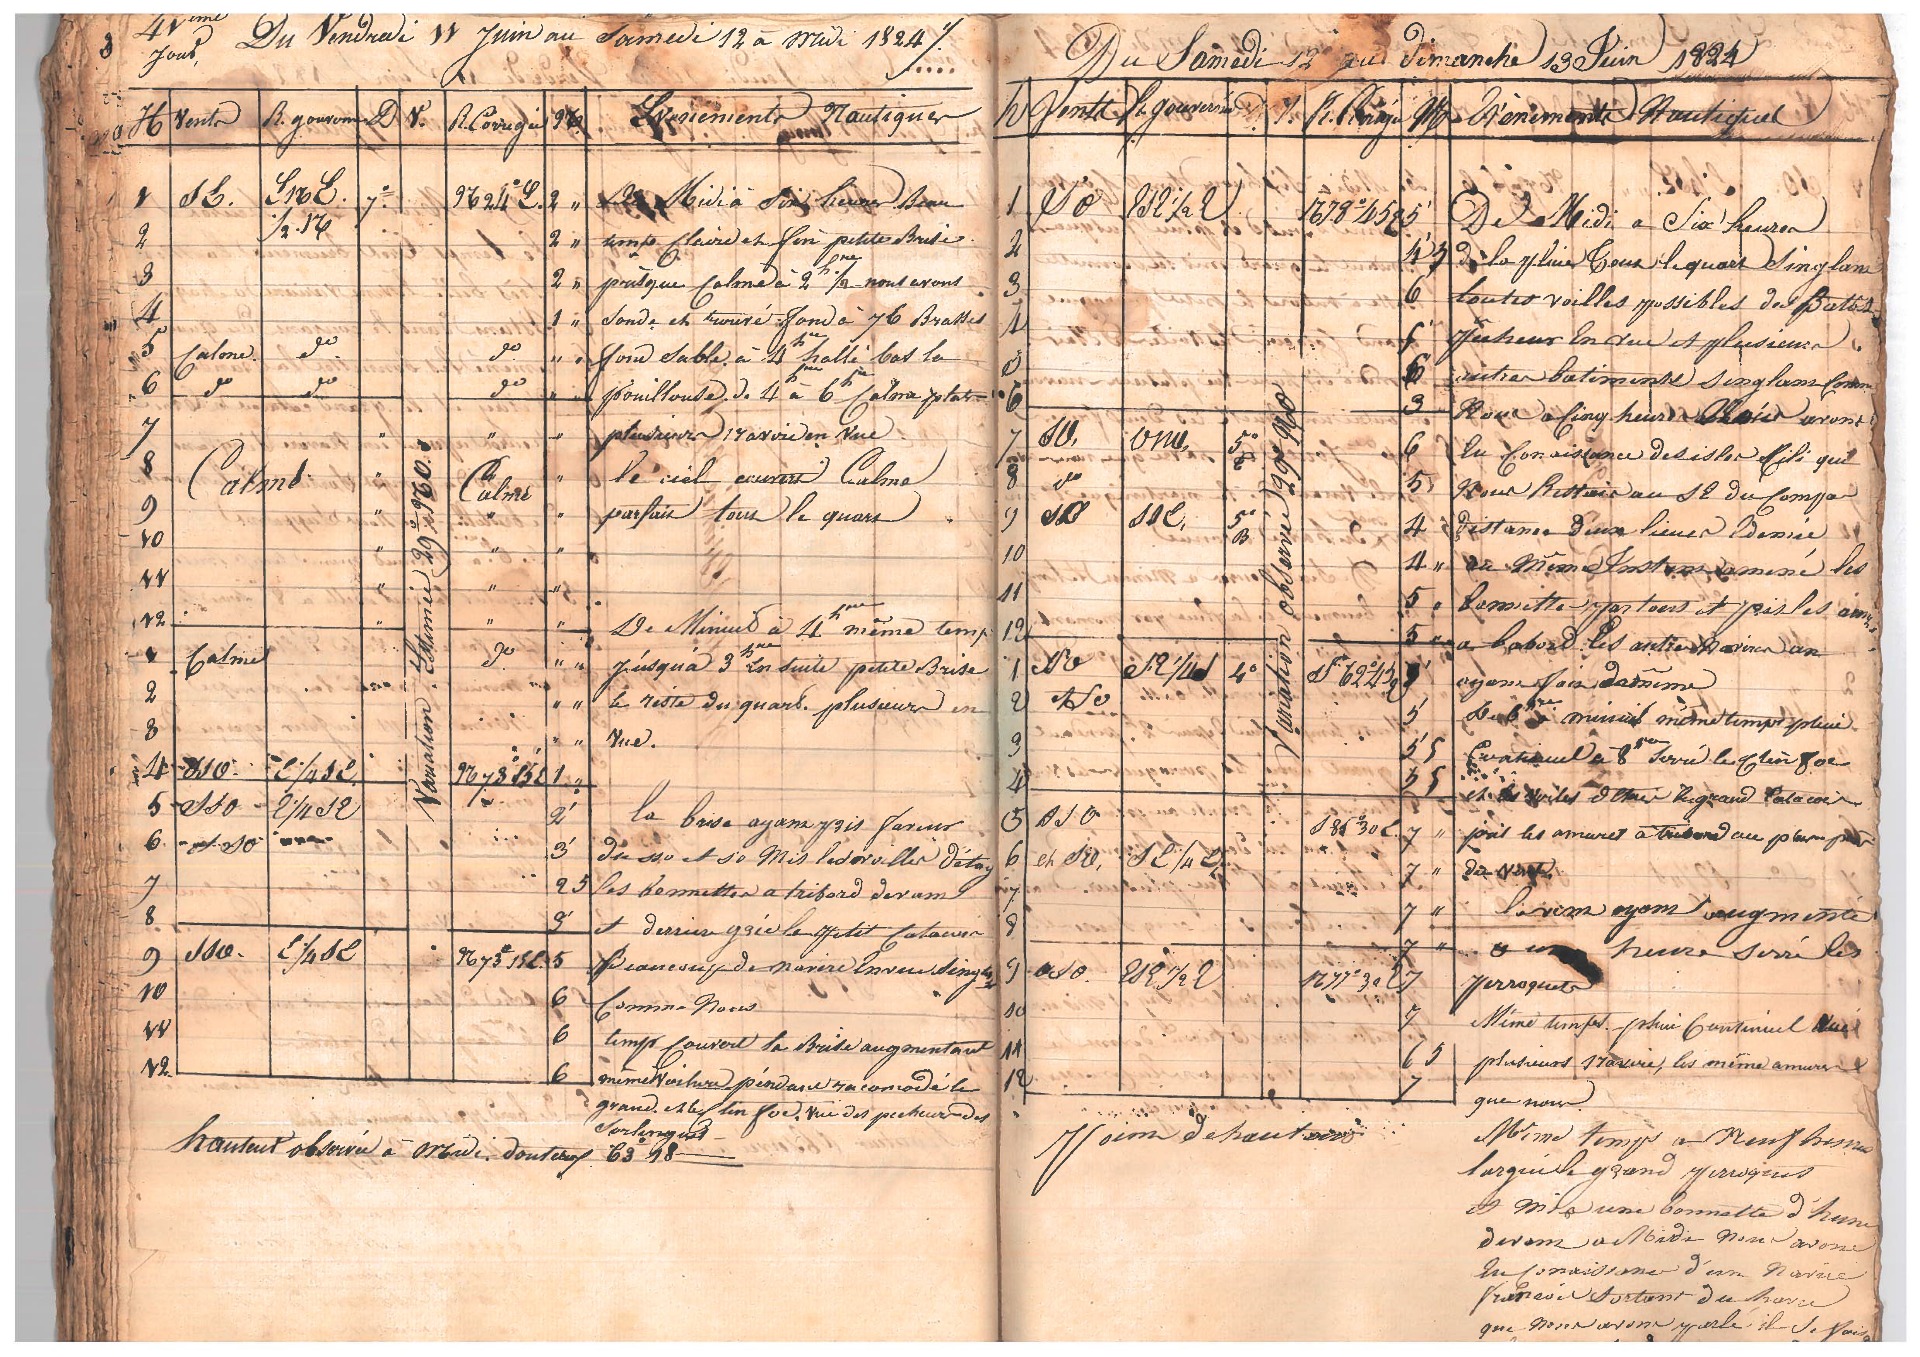 41eme Jour, Du Vendredi 11 Juin au Samedi 12 à Midi 1824
H Vents R. gouverné D V. R. Corrigée Evenements Nautiques
1 SE. 7° N 24° E. 2 " De Midi à Six heures Beau
1/2 N
2 2 " temp claire et fin petite Brise
3 2 " presque Calme à 2 h 1/2 nous avons
4 1 " Sondé et trouvé fond à 76 Brasses
5 Calme. do do " " fond Sable. à 4 hre hallé bas la
6 do do do " " pouillouse. de 4 hre à 6 hre Calme plat
7 " " " plusieurs navire en vue
8 Calme " Calme " le ciel couvert Calme
9 " " " parfait tous le quart
10 " " "
11 " " "
12 " " "
De Minuit à 4 hre même temp
1 Calme do " " jusqu'à 3 hre En suite petite Brise
2 " " le reste du quart. plusieurs en
3 " " vue.
4 SSO. E 1/4 SE N 73° 15 E 1 "
5 SSO E 1/4 SE 2 la brise ayant pris faveur
6 et SO 3 du SSO et SO Mis les voilles d'étay
7 2 5 les bonnettes a tribord devant
8 3 et derrier gréé le petit Catacois
9 SSO. E 1/4 SE N 73° 15 E. 5 Beaucoup de navire En vue Singlt
10 6 Comme Nous
11 6 temp Couvert la Brise augmentant
12 6 même voilure pendant racomodé le
grand et le Clin foc. vue des pecheur des
Sorlingues
hauteur observée à Midi. douteux 63° 18
Variation Estimée 29° NO
Du Samedi 12 au dimanche 13 Juin 1824
h Vents R. gouverné R. Corrigé Evénements Nautiques
1 SO ESE 1/2 E N 78° 45 E 5 De Midi a Six heures
2 4 5 de la pluie Tous le quart Singlant
3 6 toutes voilles possibles des Batt.
4 6 Pecheur En vue et plusieurs
5 6 autres batiments Singlant Comme
6 3 Nous a Cinq heures avons
7 SO, 5° 6 Eu Conaissance des isles qui
8 do 5 Nous Restais au SE du Compas
9 SO 5° 4 distance deux lieues Edemie
B
10 4 " au Même Instant amené les
11 5 " bonnette partous et pris les amures
12 5 " a babord. les autres Navires an
1 SSO SE 1/4 S 4° S 62° 45 E 5 ayant fait de même
2 5 De 6 hre a minuit même temps pluie
3 5 5 Continuel à 8 hre Serré le Clin foc
4 5 5 et les voiles d'Etais le grand Catacois
5 OSO S 86° 30 E. 7 " pris les amures a tribord au plus près
6 et SO, SE 1/4 E 7 " du vent.
7 7 " le vent ayant augmenté
8 7 " a une heure Serré les
9 OSO. ESE 1/2 E N 77° 30 E 7 perroquets
10 7 Même temps. pluie Continuel Vue
11 6 5 plusieurs navire, les même amures
12 7 que nous.
Variation observée 29° NO
Point de hauteur
Même temps a Neuf heures
largué le grand perroquet
et Mis une bonnette d'hune
devant a Midi Nous avons
Eu Conaissance d'un Navire
francois Sortant du havre
que Nous avons parlé il Se fais